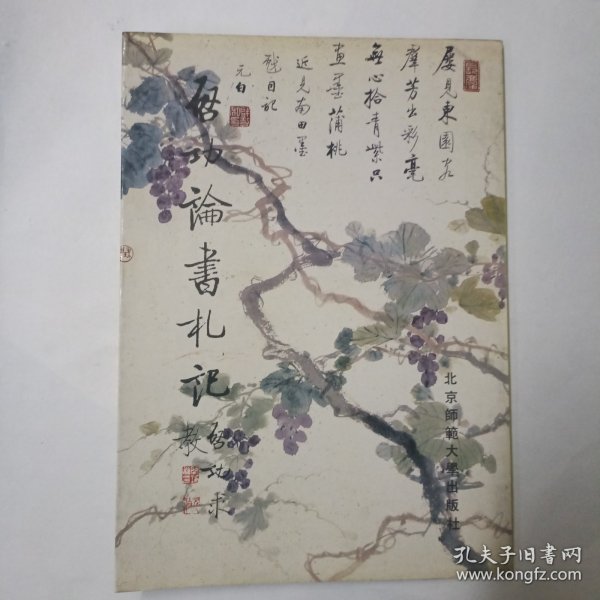 屡見東園客
羣芳出彩毫
無心拾青紫只
畫墨蒲桃
近見南田墨
戲日記
元白
啟功論書札記
啟功求
教
北京師範大學出版社
孔夫子旧书网
www.kongfz.com